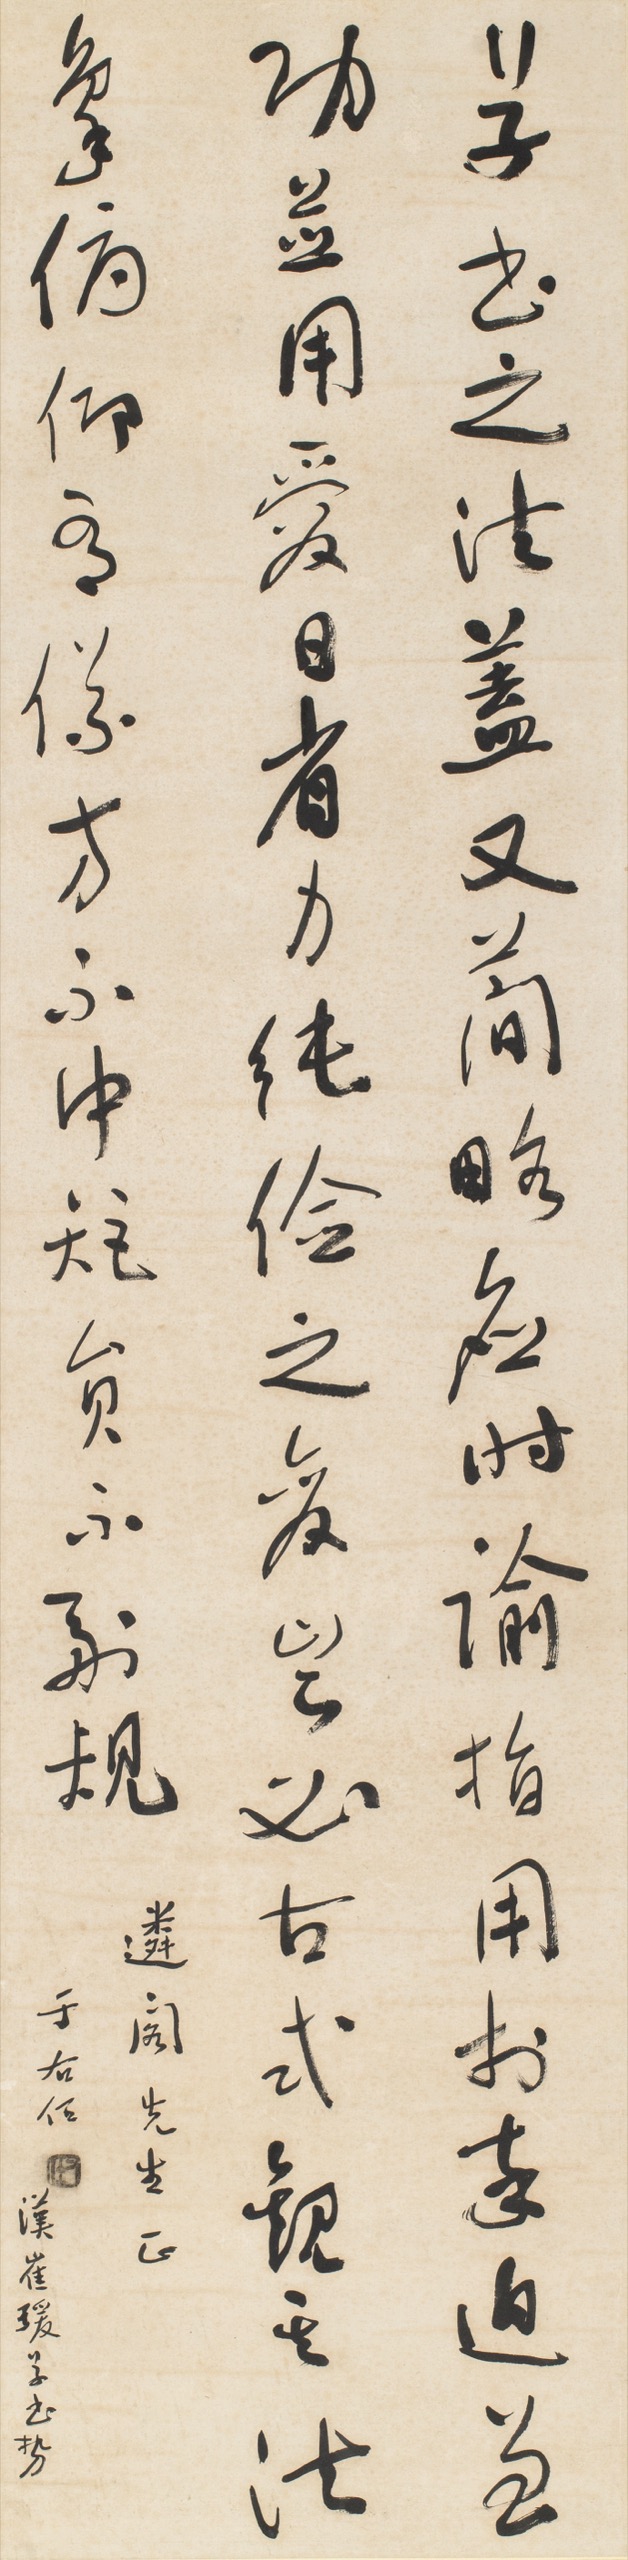 草书之法盖又简略应时谕指用於卒迫兼
功并用爱日省力纯俭之变岂必古式观其法
象俯仰有仪方不中矩员不副规
遴阁先生正
于右任
汉崔瑗草书势